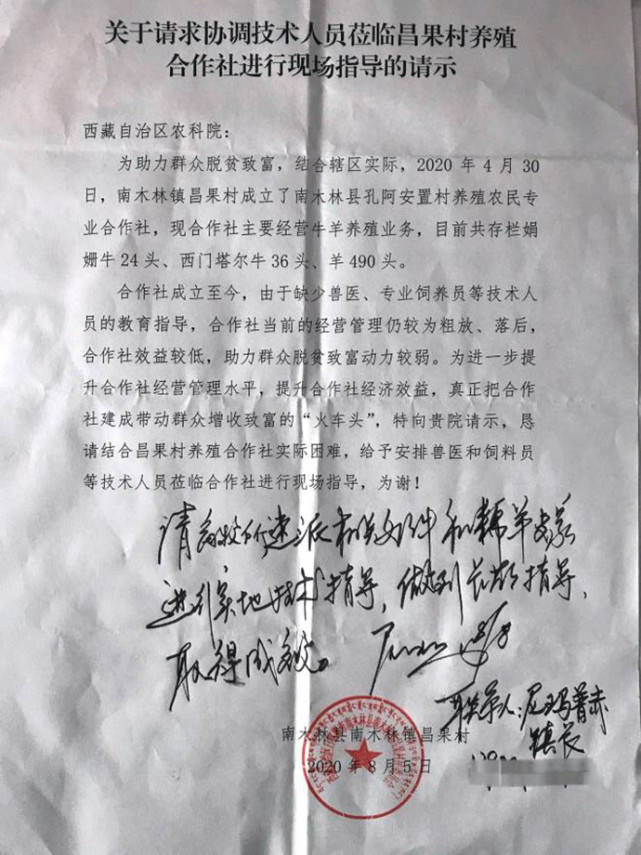 关于请求协调技术人员莅临昌果村养殖
合作社进行现场指导的请示
西藏自治区农科院：
为助力群众脱贫致富，结合辖区实际，2020 年 4 月 30
日，南木林镇昌果村成立了南木林县孔阿安置村养殖农民专
业合作社，现合作社主要经营牛羊养殖业务，目前共存栏娟
姗牛 24 头、西门塔尔牛 36 头、羊 490 头。
合作社成立至今，由于缺少兽医、专业饲养员等技术人
员的教育指导，合作社当前的经营管理仍较为粗放、落后，
合作社效益较低，助力群众脱贫致富动力较弱。为进一步提
升合作社经营管理水平，提升合作社经济效益，真正把合作
社建成带动群众增收致富的“火车头”，特向贵院请示，恳
请结合昌果村养殖合作社实际困难，给予安排兽医和饲料员
等技术人员莅临合作社进行现场指导，为谢！
请 所速派 和 羊
进行实地技术指导，做到长期指导，
取得成效。
联系人：尼玛普赤
镇长
南木林县南木林镇昌果村
2020 年 8 月 5 日